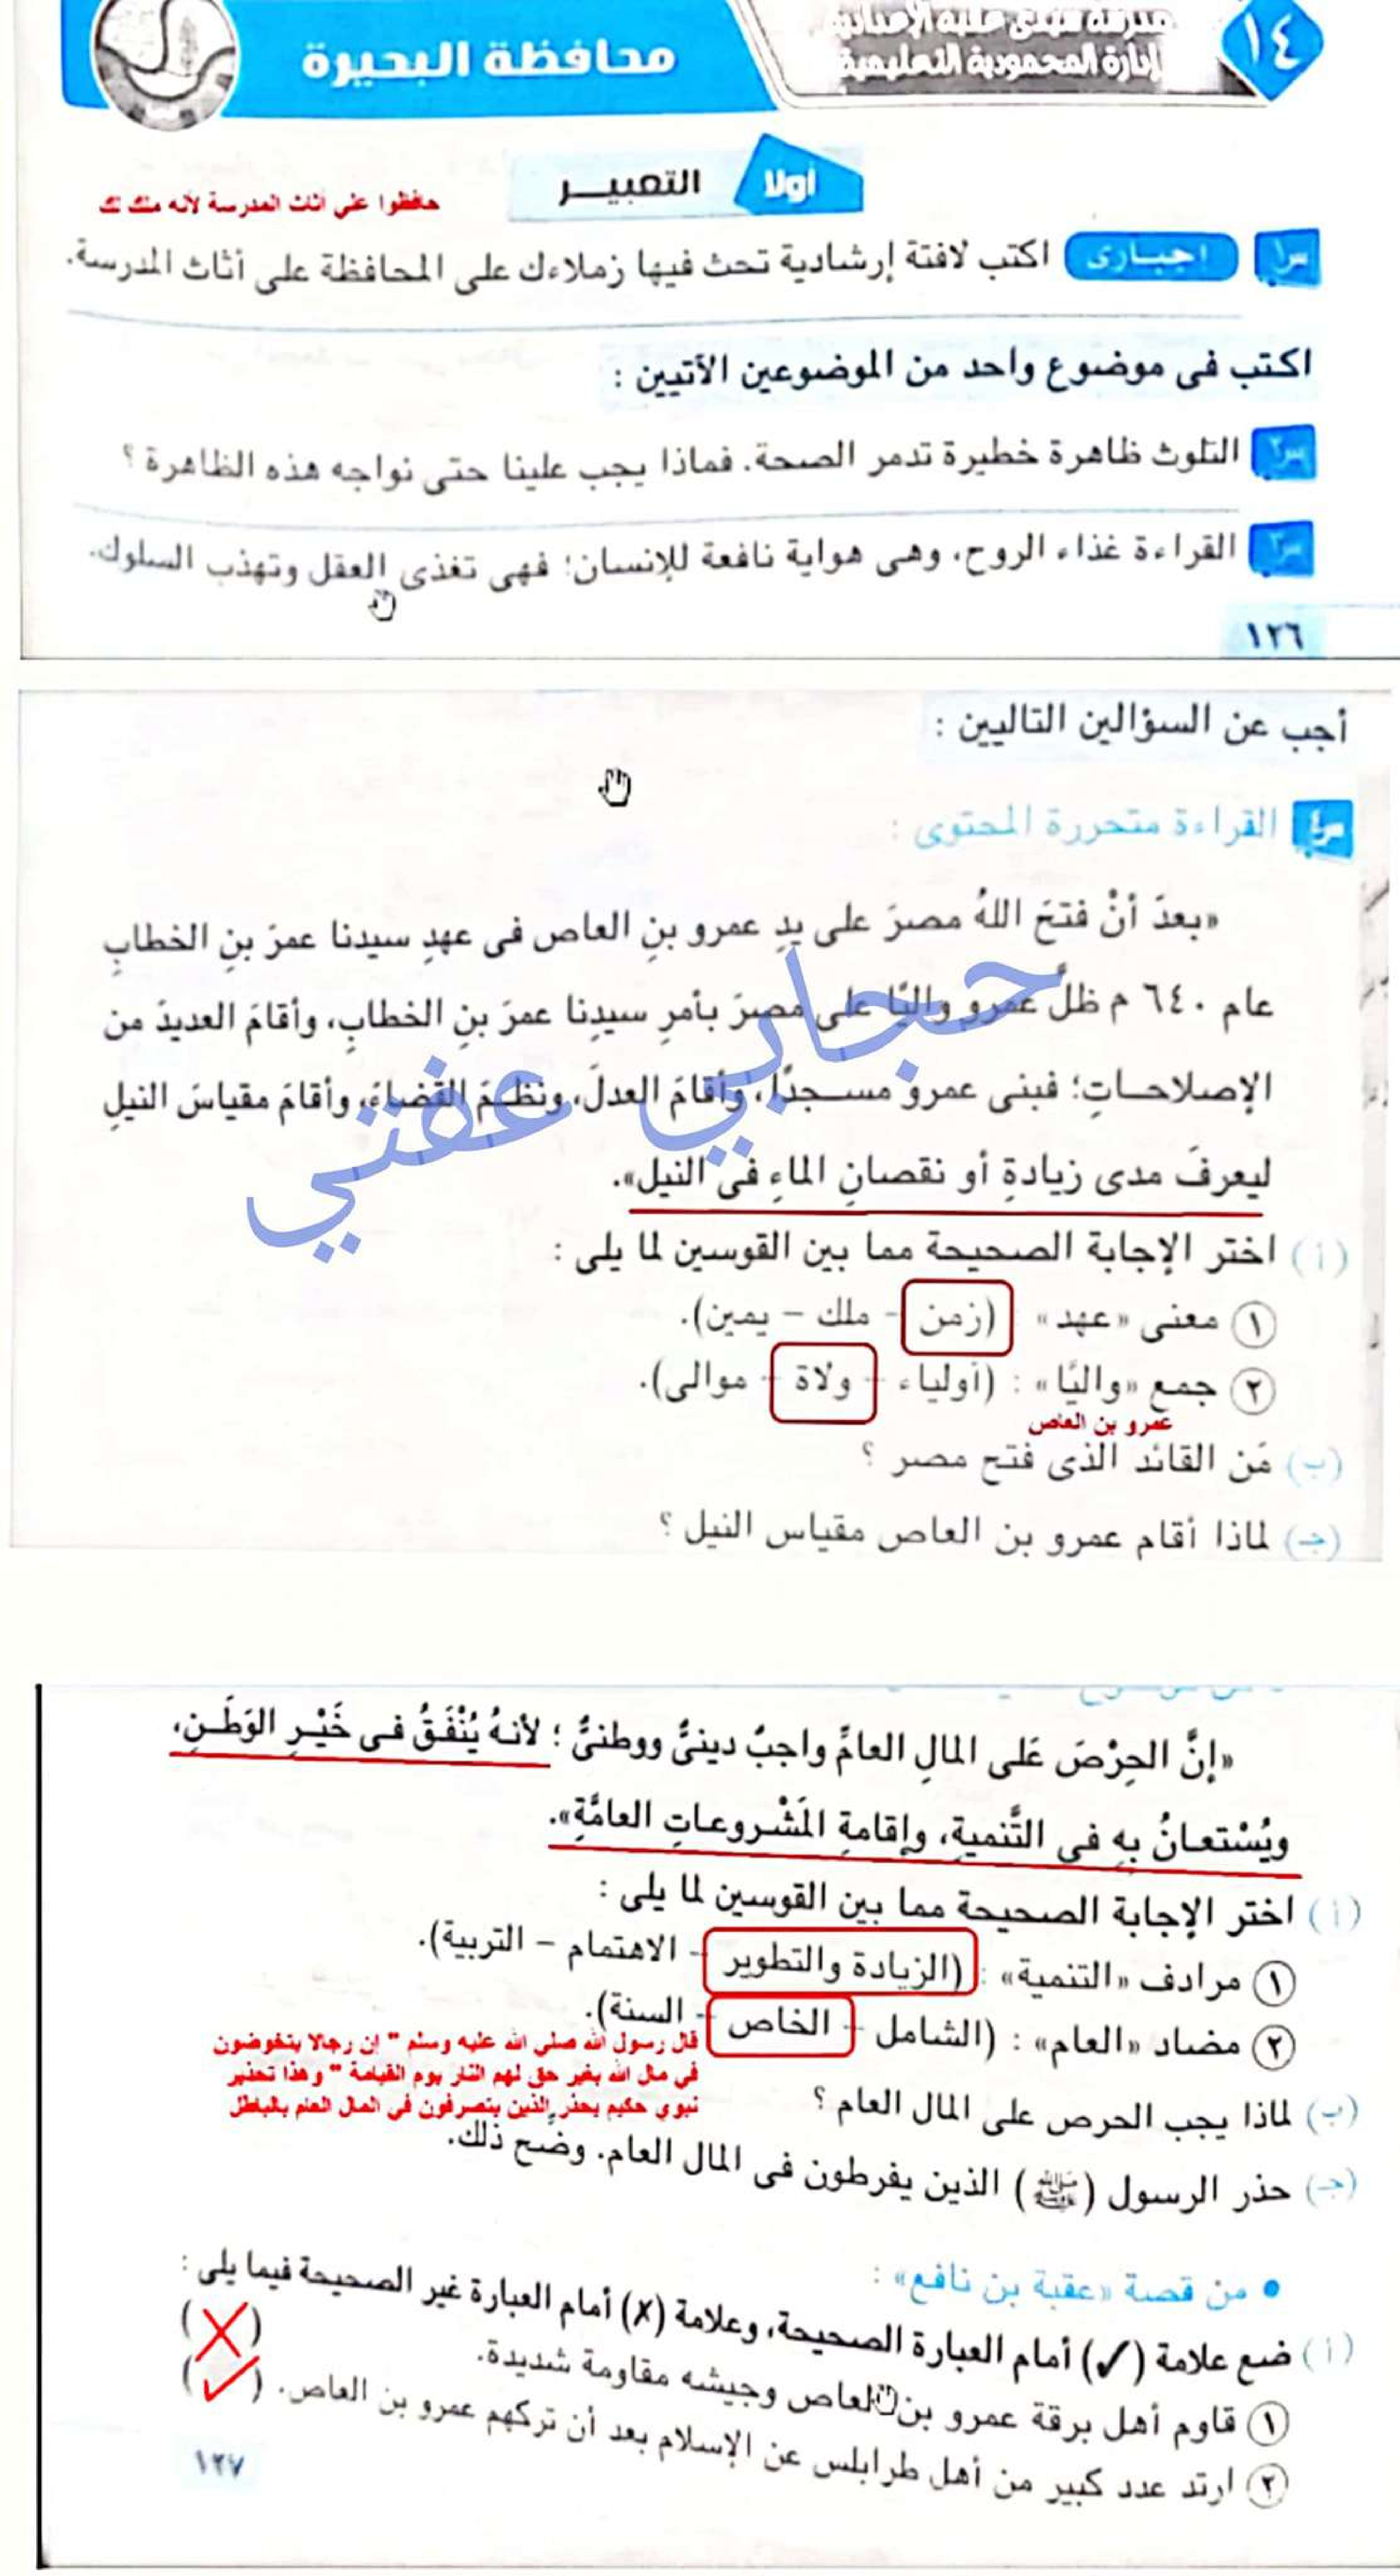 ١٤
إدارة المحمودية التعليمية
محافظة البحيرة
أولا التعبيــر
حافظوا على أثاث المدرسة لأنه ملك لك
س١ اجبارى اكتب لافتة إرشادية تحث فيها زملاءك على المحافظة على أثاث المدرسة.
اكتب فى موضوع واحد من الموضوعين الأتيين :
س٢ التلوث ظاهرة خطيرة تدمر الصحة. فماذا يجب علينا حتى نواجه هذه الظاهرة ؟
س٣ القراءة غذاء الروح، وهى هواية نافعة للإنسان؛ فهى تغذى العقل وتهذب السلوك.
١٢٦
أجب عن السؤالين التاليين :
س٤ القراءة متحررة المحتوى :
«بعدَ أنْ فتحَ اللهُ مصرَ على يدِ عمرو بنِ العاص فى عهدِ سيدنا عمرَ بنِ الخطابِ
عام ٦٤٠ م ظلَّ عمرو واليًا على مصرَ بأمرِ سيدِنا عمرَ بنِ الخطابِ، وأقامَ العديدَ من
الإصلاحـاتِ؛ فبنى عمرو مســجدًا، وأقامَ العدلَ، ونظـمَ القضاءَ، وأقامَ مقياسَ النيلِ
ليعرفَ مدى زيادةِ أو نقصانِ الماءِ فى النيل».
حجابي عفتي
(أ) اختر الإجابة الصحيحة مما بين القوسين لما يلى :
١ معنى «عهد» (زمن - ملك - يمين).
٢ جمع «واليًا» : (أولياء - ولاة - موالى).
عمرو بن العاص
(ب) مَن القائد الذى فتح مصر ؟
(جـ) لماذا أقام عمرو بن العاص مقياس النيل ؟
«إنَّ الحِرْصَ عَلى المالِ العامِّ واجبٌ دينىٌّ ووطنىٌّ ؛ لأنهُ يُنْفَقُ فى خَيْـرِ الوَطَـنِ،
ويُسْتعـانُ بِه فى التَّنميةِ، وإقامةِ المَشْـروعـاتِ العامَّةِ».
(أ) اختر الإجابة الصحيحة مما بين القوسين لما يلى :
١ مرادف «التنمية» : (الزيادة والتطوير - الاهتمام - التربية).
٢ مضاد «العام» : (الشامل - الخاص - السنة).
قال رسول الله صلي الله عليه وسلم " إن رجالا يتخوضون
في مال الله بغير حق لهم النار يوم القيامة " وهذا تحذير
نبوي حكيم يحذر الذين يتصرفون في المال العام بالباطل
(ب) لماذا يجب الحرص على المال العام ؟
(جـ) حذر الرسول (ﷺ) الذين يفرطون فى المال العام. وضِّح ذلك.
• من قصة «عقبة بن نافع» :
(أ) ضع علامة (✓) أمام العبارة الصحيحة، وعلامة (✗) أمام العبارة غير الصحيحة فيما يلى :
١ قاوم أهل برقة عمرو بن العاص وجيشه مقاومة شديدة. (✗)
٢ ارتد عدد كبير من أهل طرابلس عن الإسلام بعد أن تركهم عمرو بن العاص. (✓)
١٢٧